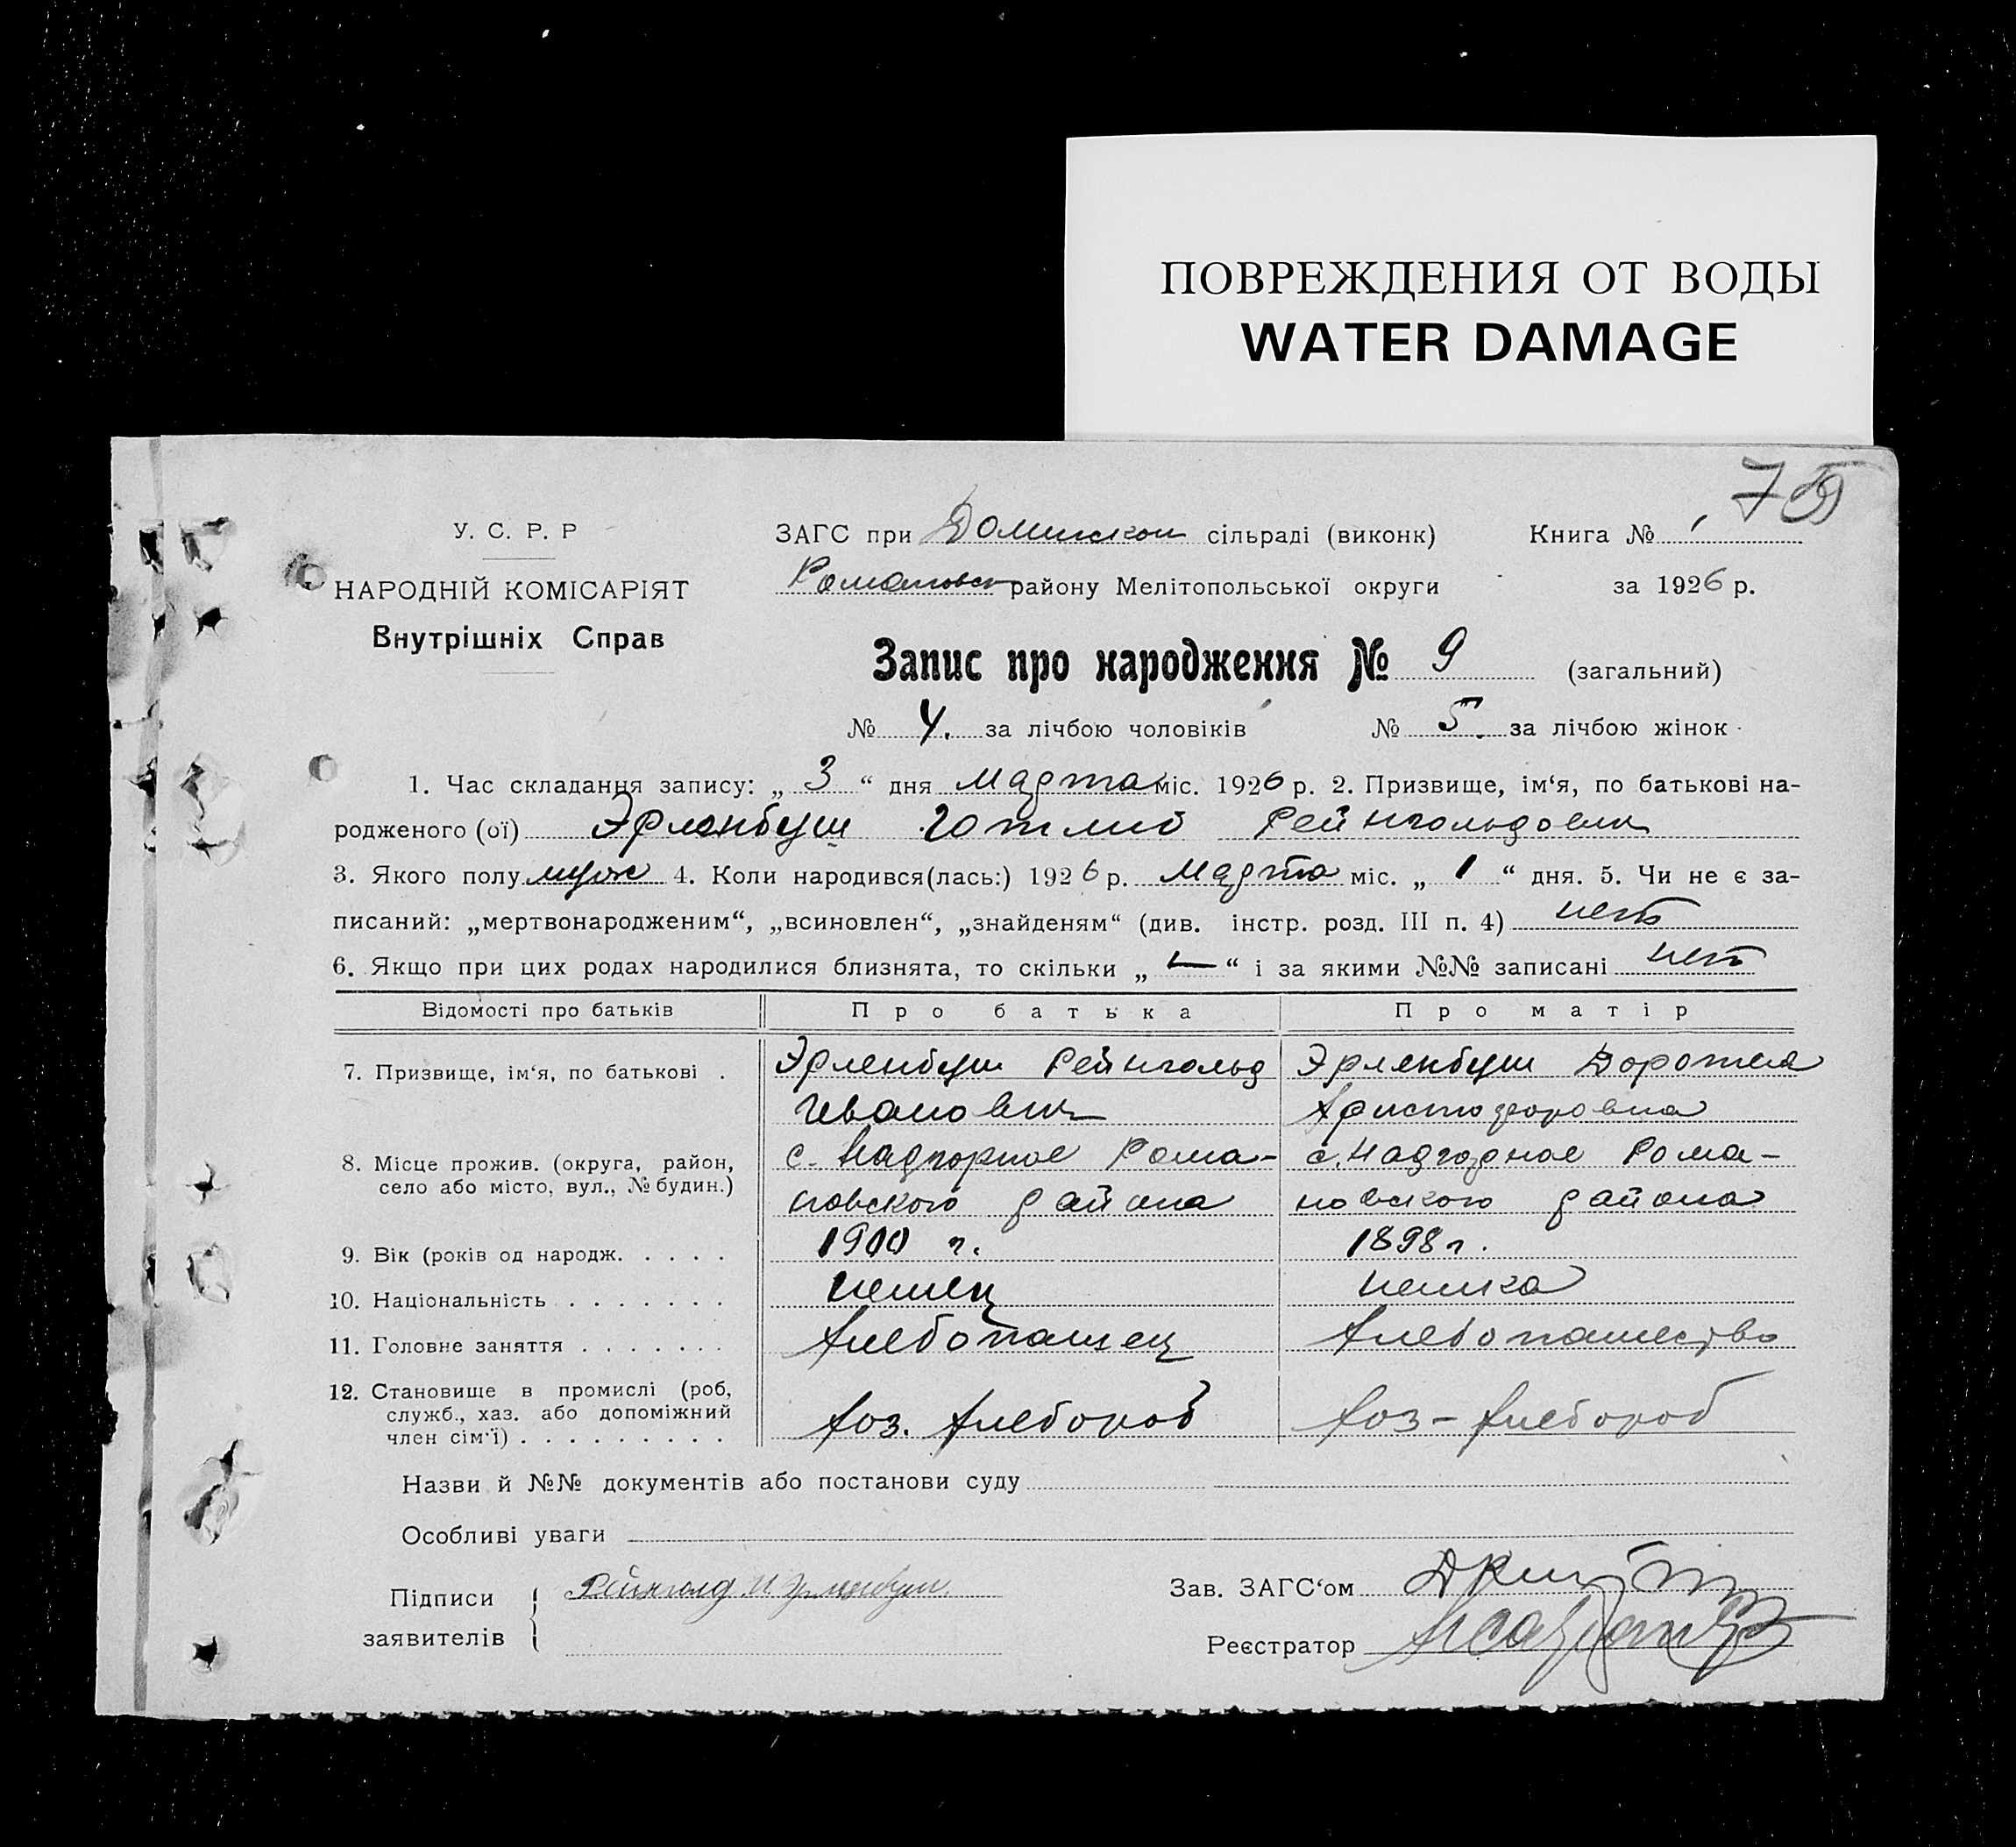 ПОВРЕЖДЕНИЯ ОТ ВОДЫ
WATER DAMAGE
У. С. Р. Р
НАРОДНІЙ КОМІСАРІЯТ
Внутрішніх Справ
ЗАГС при сільраді (виконк) Книга №
Романовск району Мелітопольської округи за 1926 р.
Запис про народження № 9 (загальний)
№ 4. за лічбою чоловіків № 5. за лічбою жінок
1. Час складання запису: „ 3 “ дня Марта міс. 1926 р. 2. Призвище, ім‘я, по батькові на-
родженого (ої) Эрленбуш Рейнгольдович
3. Якого полу муж 4. Коли народився(лась:) 1926 р. Марта міс. „ 1 “ дня. 5. Чи не є за-
писаний: „мертвонародженим“, „всиновлен“, „знайденям“ (див. інстр. розд. III п. 4) нет
6. Якщо при цих родах народилися близнята, то скільки „ — “ і за якими №№ записані нет
Відомості про батьків Про батька Про матір
7. Призвище, ім‘я, по батькові . Эрленбуш Рейнгольд Эрленбуш Доротея
Иванович Христофоровна
8. Місце прожив. (округа, район, с. Надгорное Рома- с. Надгорное Рома-
село або місто, вул., № будин.) новского района новского района
9. Вік (років од народж. . . . . 1900 г. 1898 г.
10. Національність . . . . . . . немец немка
11. Головне заняття . . . . . . . хлебопашец хлебопашество
12. Становище в промислі (роб,
служб., хаз. або допоміжний хоз. хлебороб хоз - хлебороб
член сім‘ї) . . . . . . . . .
Назви й №№ документів або постанови суду
Особливі уваги
Підписи Рейнголд И Эрленбуш
заявителів
Зав. ЗАГС‘ом
Реєстратор